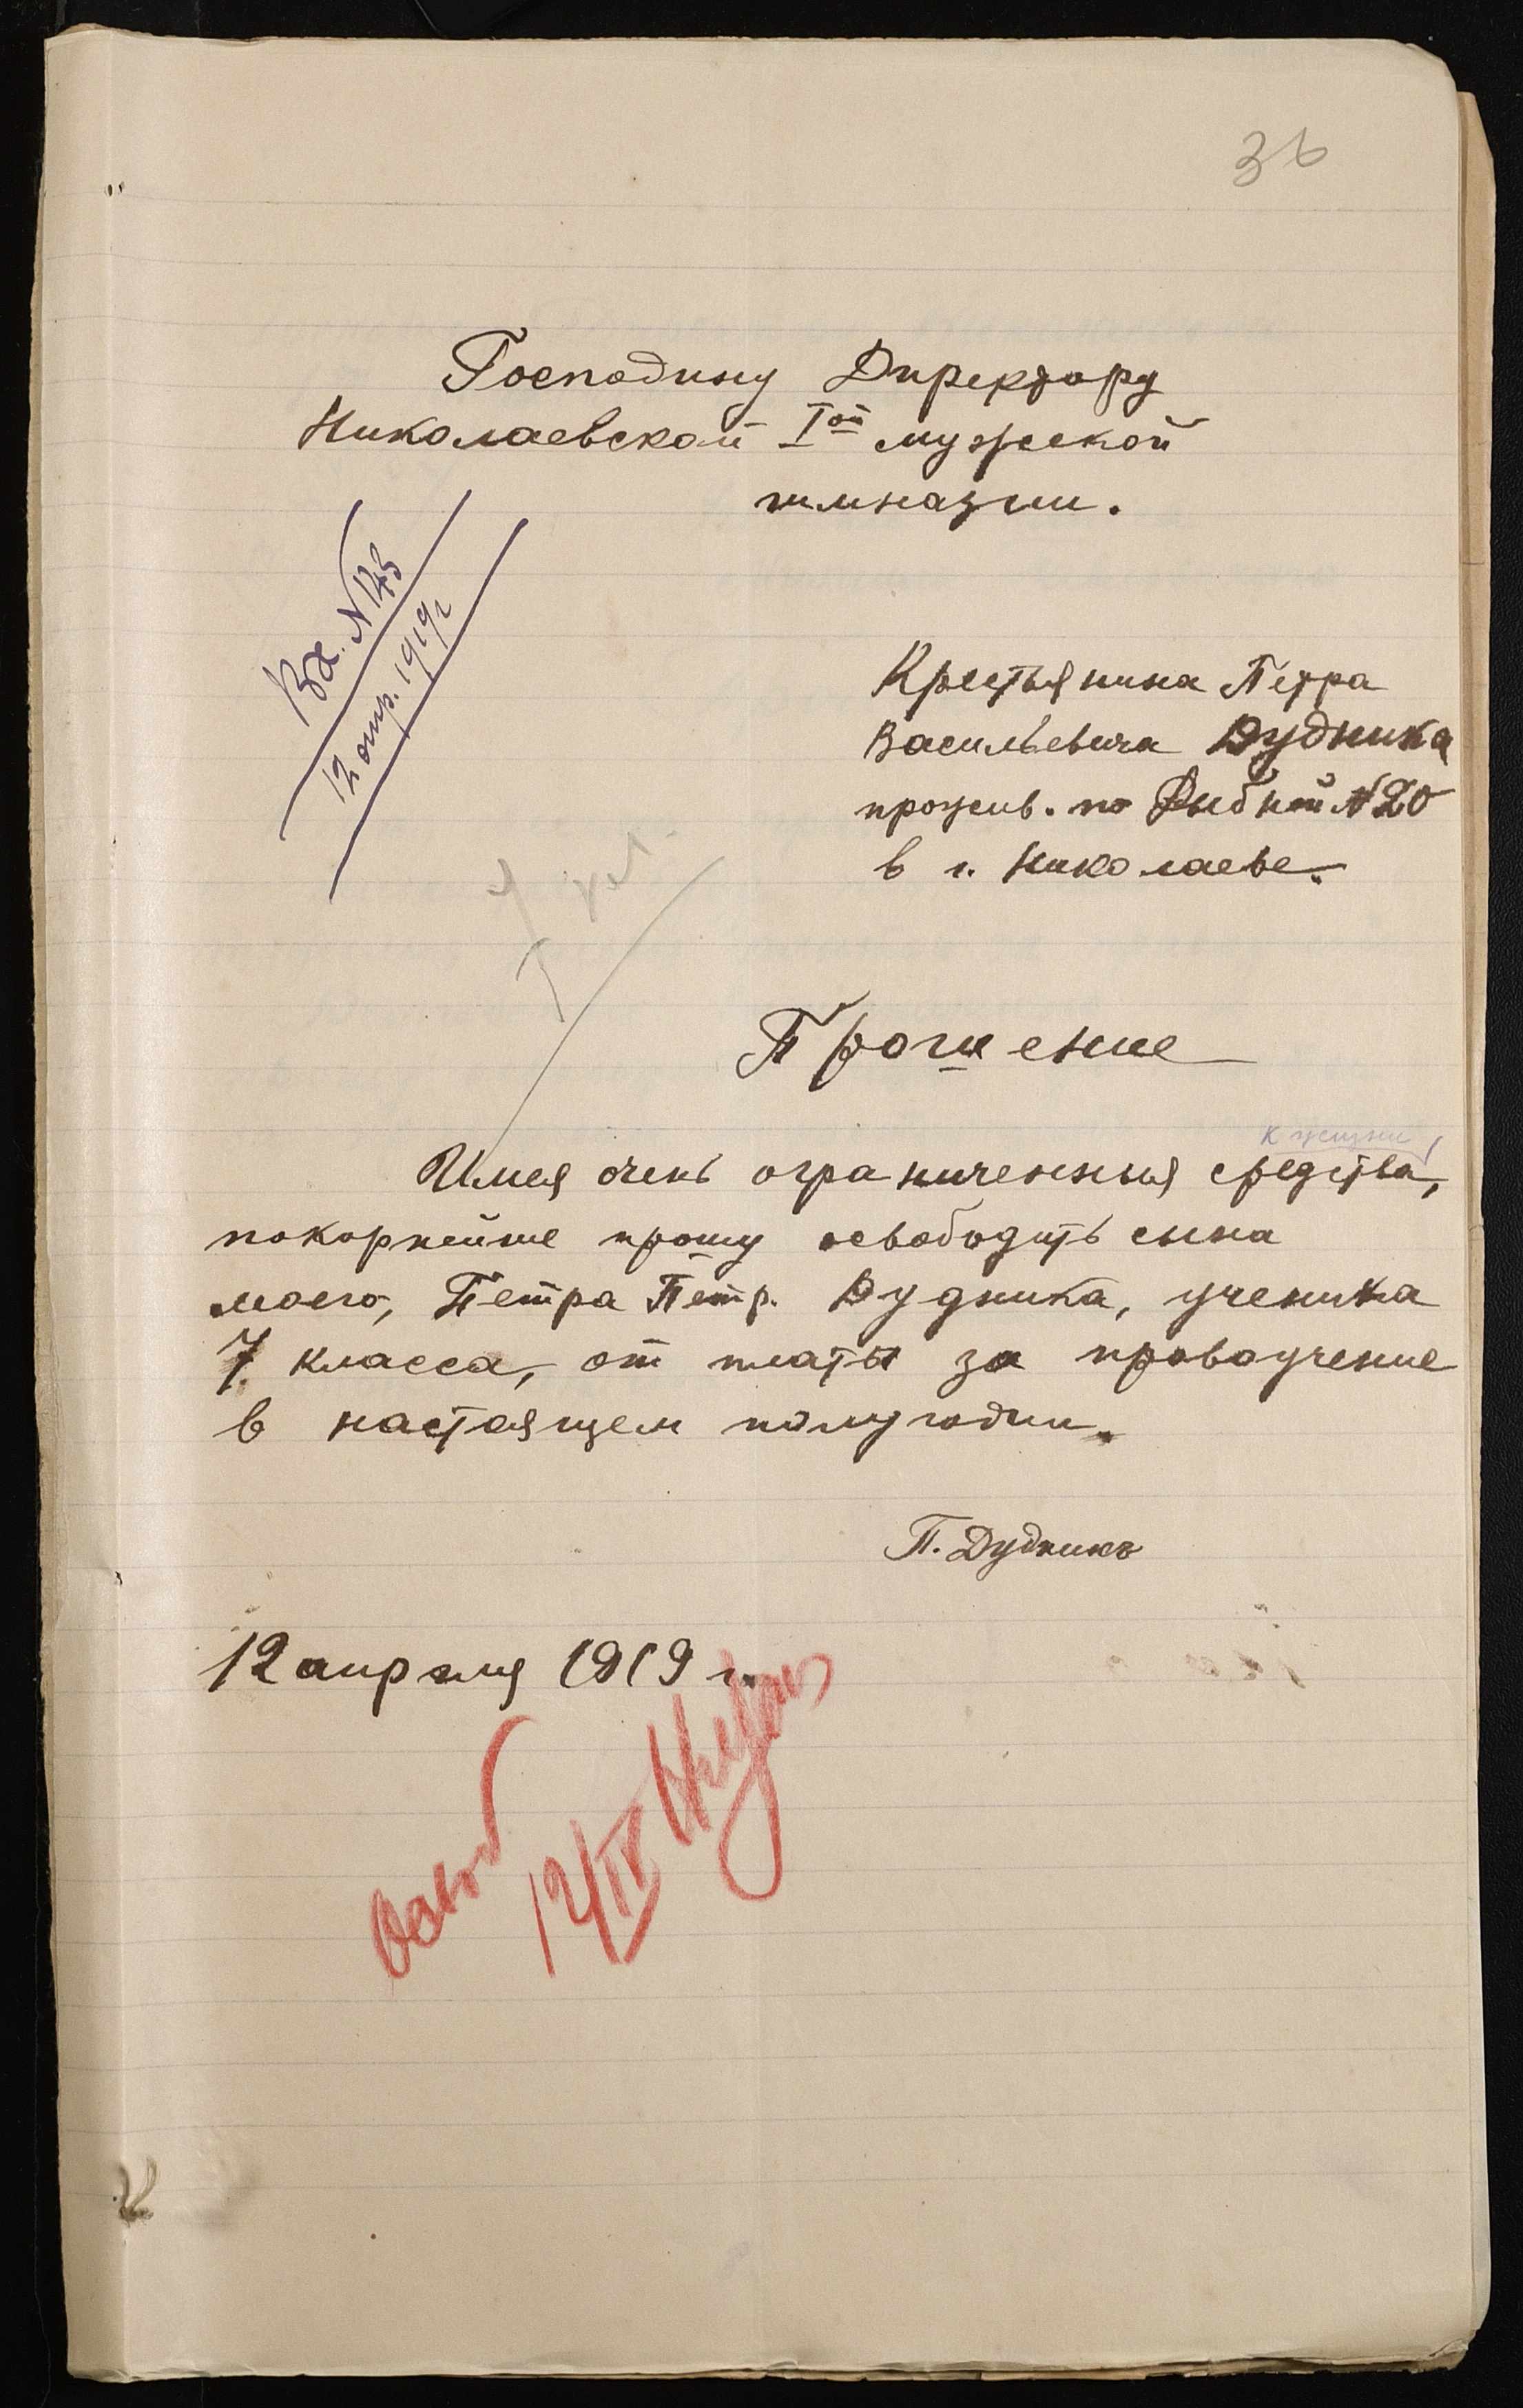 36
Господину Директору
Николаевской Iой мужской
гимназии.
Вх. N 143
12 апр. 1919 г
Крестьянина Петра
Васильевича Дудника
прожив. по Рыбной N 20
в г. Николаеве.
Прошение
к жизни
Имея очень ограниченныя средства,
покорнейше прошу освободить сына
моего, Петра Петр. Дудника, ученика
7 класса, от платы за правоучение
в настоящем полугодии.
П. Дудникъ
12 апреля 1919 г.
Освоб
12/IV